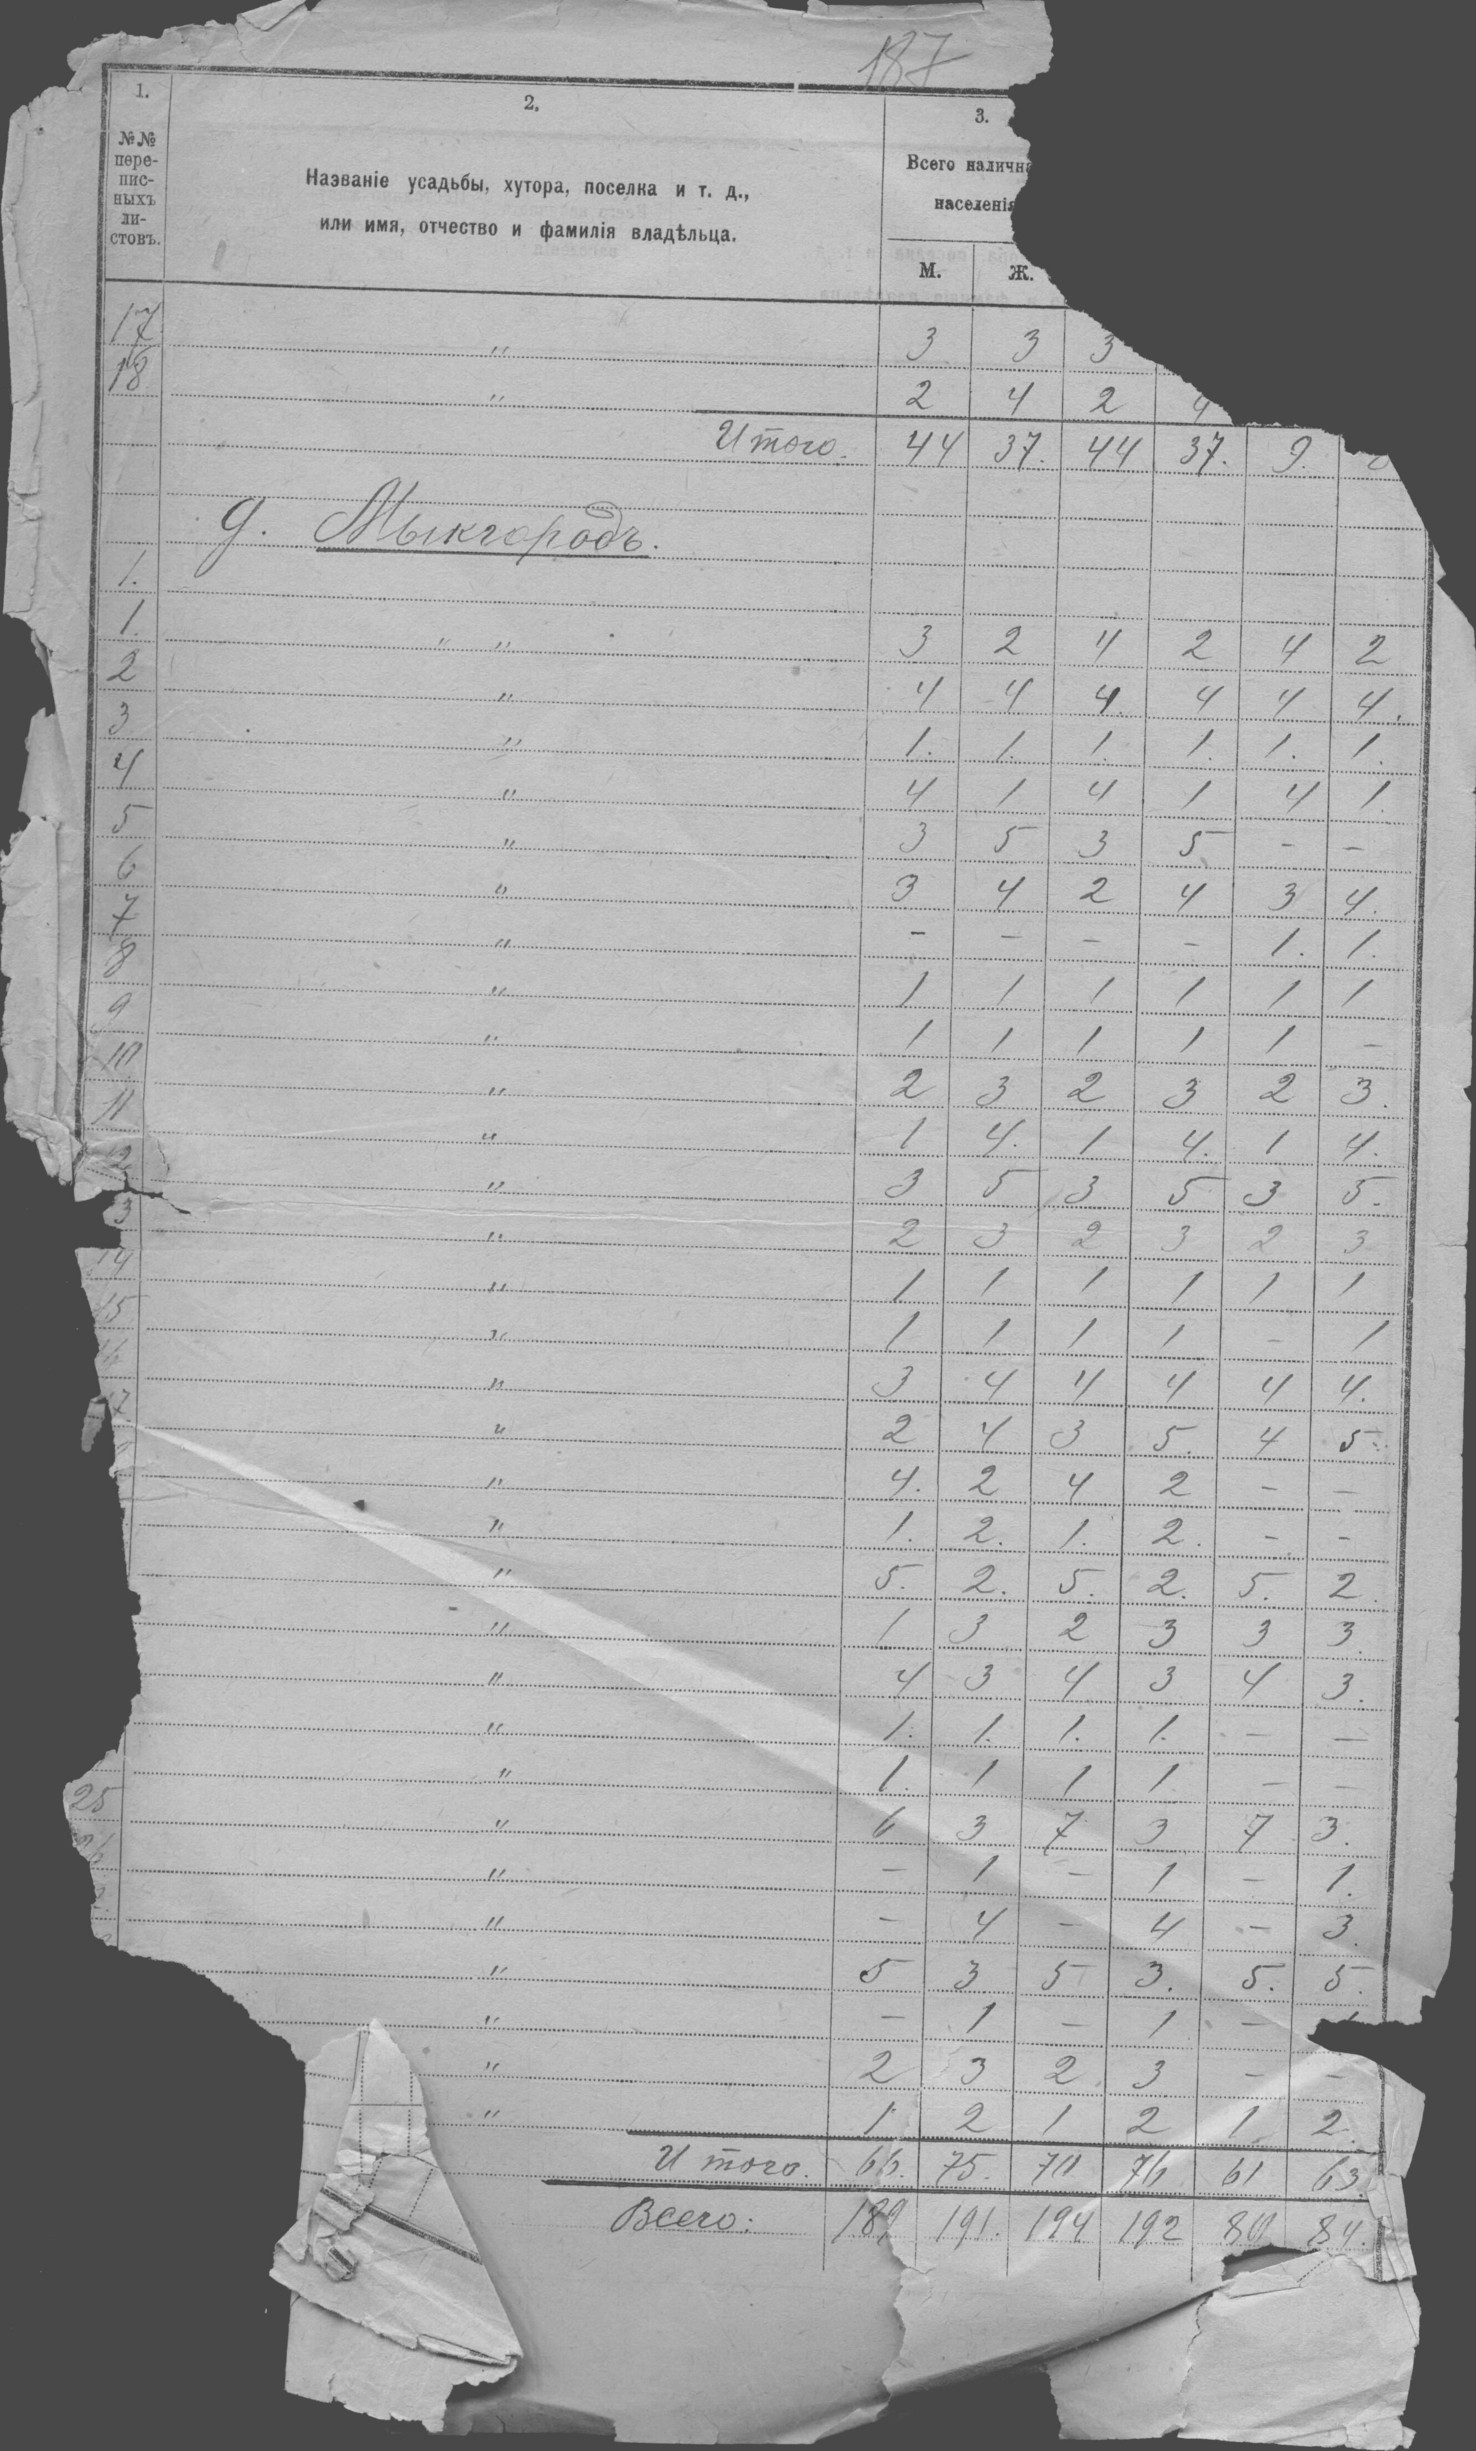 187
1. 2. 3.
№№ пере- пис- ныхъ ли- стовъ.
Названіе усадьбы, хутора, поселка и т. д.,
или имя, отчество и фамилія владѣльца.
Всего налична
населенія
М. Ж.
17 " 3 3 3
18 " 2 4 2 4
Итого. 44 37. 44 37. 9.
д. Мыкгородъ.
1.
1. " " 3 2 4 2 4 2
2 " 4 4 4. 4 4 4.
3 " 1. 1. 1. 1. 1. 1.
4 " 4 1 4 1 4 1.
5 " 3 5 3 5 - -
6 " 3 4 2 4 3 4.
7 " - - - - 1. 1.
8 " 1 1 1 1 1 1
9 " 1 1 1 1 1 -
10 " 2 3 2 3 2 3.
11 " 1 4. 1 4. 1 4.
2 " 3 5 3 5 3 5.
3 " 2 3 2 3 2 3
14 " 1 1 1 1 1 1
15 " 1 1 1 1 - 1
6 " 3 4 4 4 4 4.
7 " 2 4 3 5. 4 5.
" 4. 2 4 2 - -
" 1. 2. 1. 2. - -
" 5. 2. 5. 2. 5. 2.
" 1 3 2 3 3 3.
" 4 3 4 3 4 3.
" 1. 1. 1. 1. - -
" 1. 1 1 1 - -
25 " 6 3 7 3 7 3.
26 " - 1 - 1 - 1.
" - 4 - 4 - 3.
" 5 3 5 3. 5. 5.
" - 1 - 1 -
" 2 3 2 3 - -
" 1 2 1 2 1 2.
Итого. 66. 75. 70 76 61 63.
Всего: 189 191. 194 192 80 84.